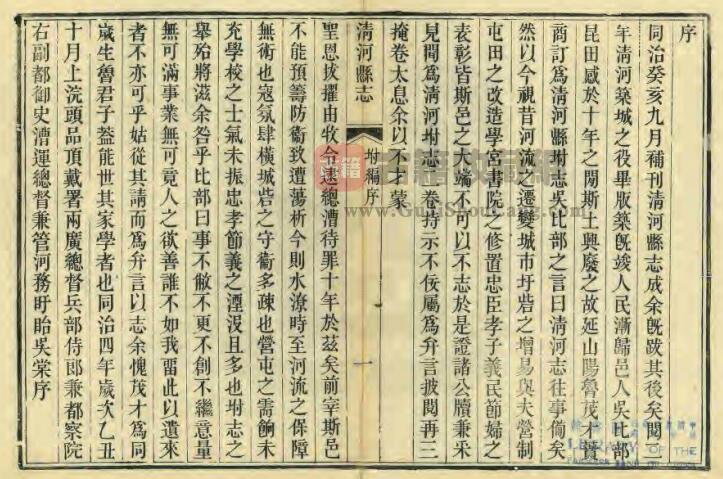 序
同治癸亥九月補刊清河縣志成余旣跋其後矣閱二
年清河築城之役畢版築旣竣人民漸歸邑人吳比部
昆田感於十年之閒斯土興廢之故延山陽魯茂才蕡
商訂爲清河縣坿志吳比部之言曰清河志往事備矣
然以今視昔河流之遷變城市圩砦之增易與夫營制
屯田之改造學宮書院之修置忠臣孝子義民節婦之
表彰皆斯邑之大端不可以不志於是證諸公牘兼采
見聞爲清河坿志二卷持示不佞屬爲弁言披閱再三
掩卷太息余以不才蒙
清河縣志
坿編序
一
聖恩拔擢由牧令遽總漕待罪十年於茲矣前宰斯邑
不能預籌防衞致遭蕩析今則水潦時至河流之保障
無術也寇氛肆橫城砦之守衞多疎也營屯之需餉未
充學校之士氣未振忠孝節義之湮沒且多也坿志之
舉殆將滋余咎乎比部曰事不敝不更不創不繼意量
無可滿事業無可竟人之欲善誰不如我畱此以遺來
者不亦可乎姑從其請而爲弁言以志余愧茂才爲同
歲生魯君子葢能世其家學者也同治四年歲次乙丑
十月上浣頭品頂戴署兩廣總督兵部侍郎兼都察院
右副都御史漕運總督兼管河務盱眙吳棠序
書籍
古籍收藏網
www.GujiShouCang.com
LIBRARY OF THE